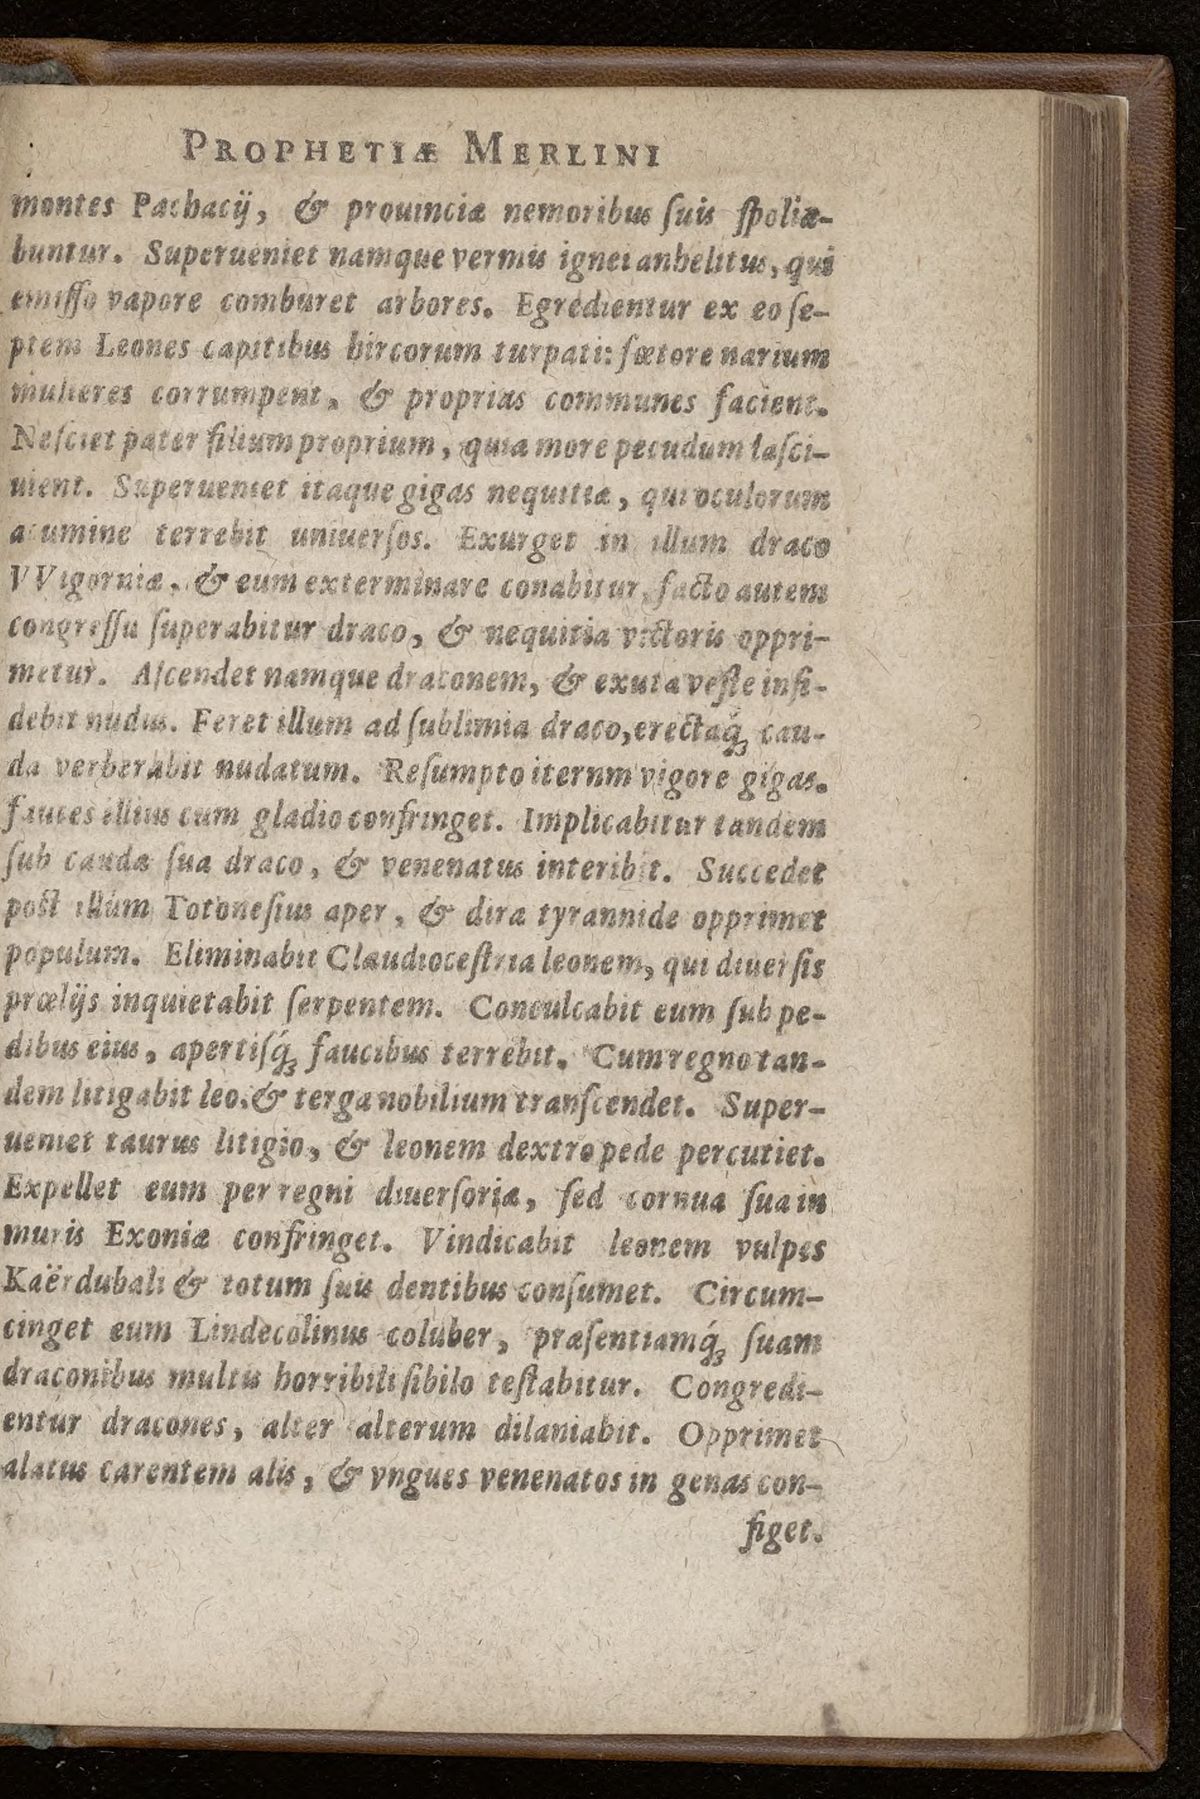 PROPHETIÆ MERLINI
montes Pachacij, & prouinciæ nemoribus ſuis ſpolia-
buntur. Superueniet namque vermis ignei anhelitus, qui
emiſſo vapore comburet arbores. Egredientur ex eo ſe-
ptem Leones capitibus hircorum turpati: fœtore narium
mulieres corrumpent, & proprias communes facient.
Neſciet pater filium proprium, quia more pecudum laſci-
uient. Superueniet itaque gigas nequitiæ, qui oculorum
acumine terrebit uniuerſos. Exurget in illum draco
VVigorniæ, & eum exterminare conabitur, facto autem
congreſſu ſuperabitur draco, & nequitia victoris oppri-
metur. Aſcendet namque draconem, & exuta veſte inſi-
debit nudus. Feret illum ad ſublimia draco, erectaq́; cau-
da verberabit nudatum. Reſumpto iternm vigore gigas.
fauces illius cum gladio confringet. Implicabitur tandem
ſub cauda ſua draco, & venenatus interibit. Succedet
poſt illum Totoneſius aper, & dira tyrannide opprimet
populum. Eliminabit Claudioceſtria leonem, qui diuerſis
prælijs inquietabit ſerpentem. Conculcabit eum ſub pe-
dibus eius, apertiſq́; faucibus terrebit. Cum regno tan-
dem litigabit leo, & terga nobilium tranſcendet. Super-
ueniet taurus litigio, & leonem dextro pede percutiet.
Expellet eum per regni diuerſoria, ſed cornua ſua in
muris Exoniæ confringet. Vindicabit leonem vulpes
Kaërdubali & totum ſuis dentibus conſumet. Circum-
cinget eum Lindecolinus coluber, præſentiamq́; ſuam
draconibus multis horribili ſibilo teſtabitur. Congredi-
entur dracones, alter alterum dilaniabit. Opprimet
alatus carentem alis, & vngues venenatos in genas con-
figet.